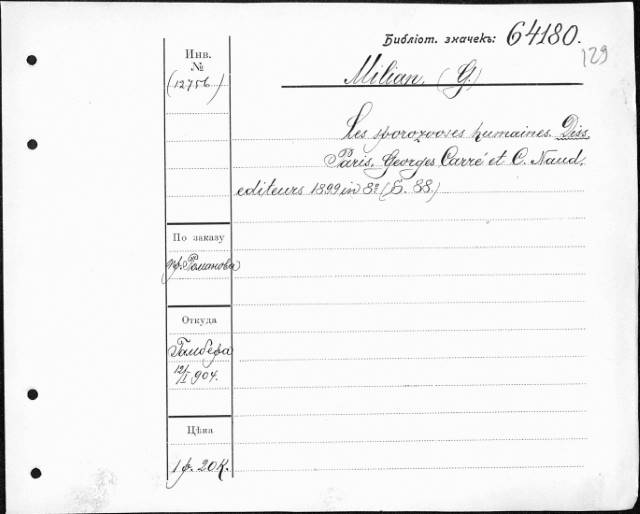 Библіот. значекъ: 64180.
129
Инв.
№
(12756)
Milian. (G.)
Les sporozooses humaines. Diss.
Paris. Georges Carré et C. Naud,
editeurs 1899 in 8° (S. 88.)
По заказу
пр. Романова
Откуда
Гамбера
12/I 904.
Цѣна
1 р. 20 К.